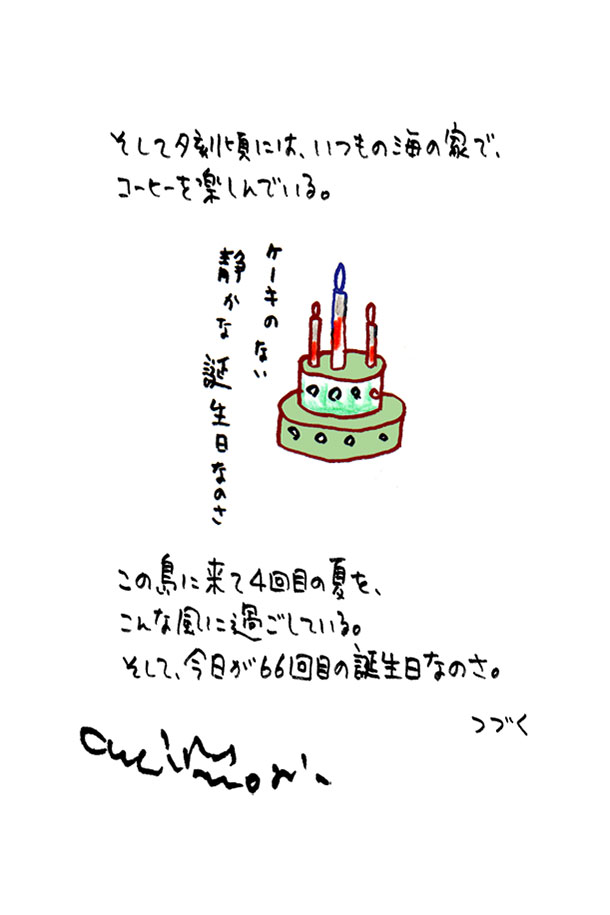 そして夕刻頃には、いつもの海の家で、
コーヒーを楽しんでいる。
ケーキのない
静かな誕生日なのさ
この島に来て4回目の夏を、
こんな風に過ごしている。
そして、今日が66回目の誕生日なのさ。
つづく